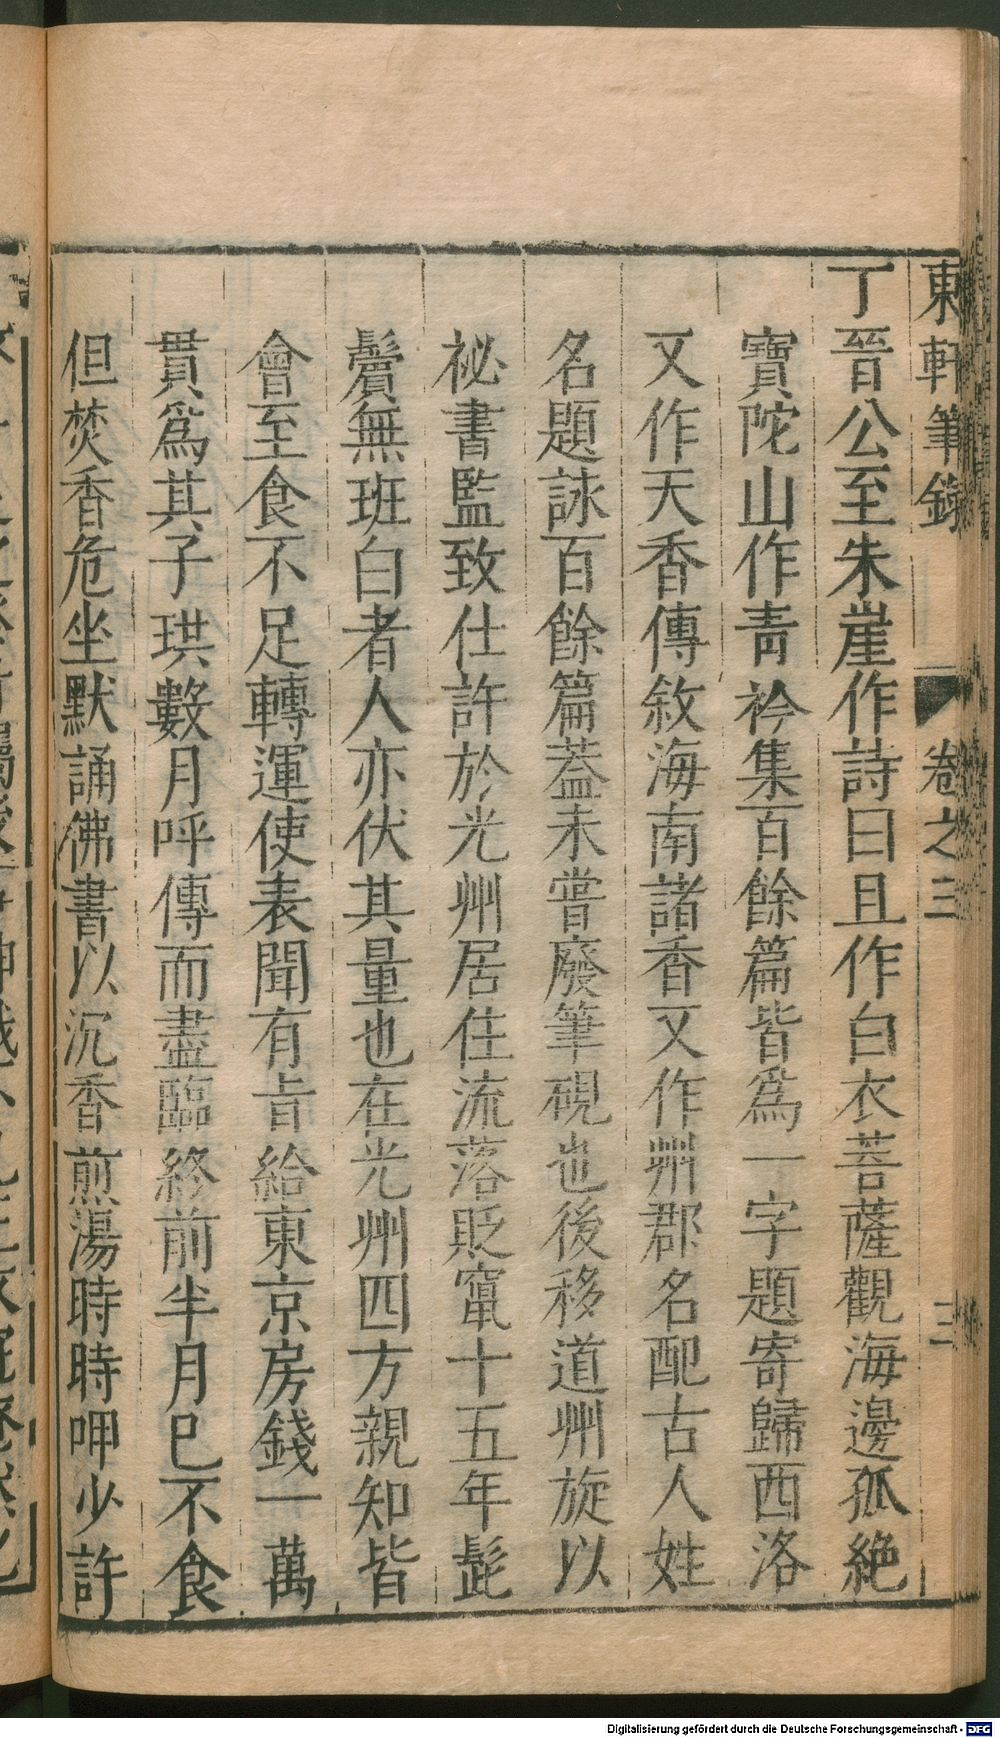 東軒筆錄 卷之三 三
丁晉公至朱崖作詩曰且作白衣菩薩觀海邊孤絶
寶陀山作靑衿集百餘篇皆爲一字題寄歸西洛
又作天香傳敘海南諸香又作州郡名配古人姓
名題詠百餘篇蓋未嘗廢筆硯也後移道州旋以
祕書監致仕許於光州居住流落貶竄十五年髭
鬢無班白者人亦伏其量也在光州四方親知皆
會至食不足轉運使表聞有旨給東京房錢一萬
貫爲其子珙數月呼傳而盡臨終前半月已不食
但焚香危坐默誦佛書以沉香煎湯時時呷少許
Digitalisierung gefördert durch die Deutsche Forschungsgemeinschaft - DFG